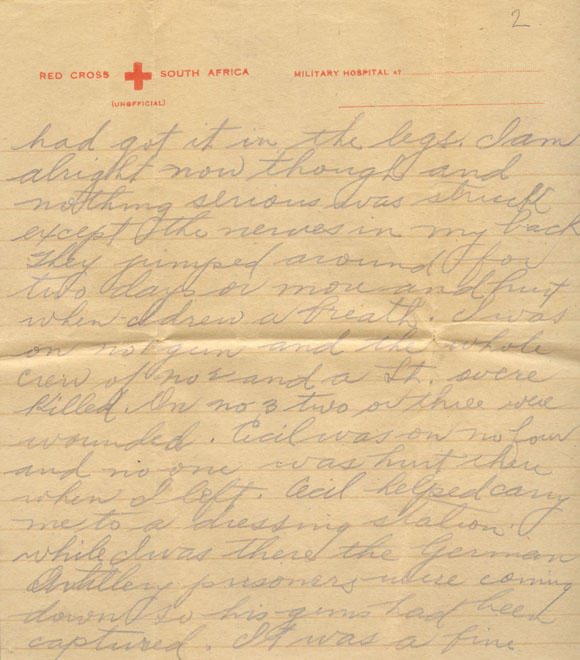 2
RED CROSS SOUTH AFRICA MILITARY HOSPITAL AT
(UNOFFICIAL)
had got it in the legs. I am
alright now though and
nothing serious was struck
except the nerves in my back
They jumped around for
two days or more and hurt
when I drew a breath. I was
on no 1 gun and the whole
crew of no 2 and a Lt. were
killed. On no 3 two or three were
wounded. Cecil was on no four
and no one was hurt there
when I left. Cecil helped carry
me to a dressing station.
while I was there the German
Artillery prisoners were coming
down so his guns had been
captured. It was a fine